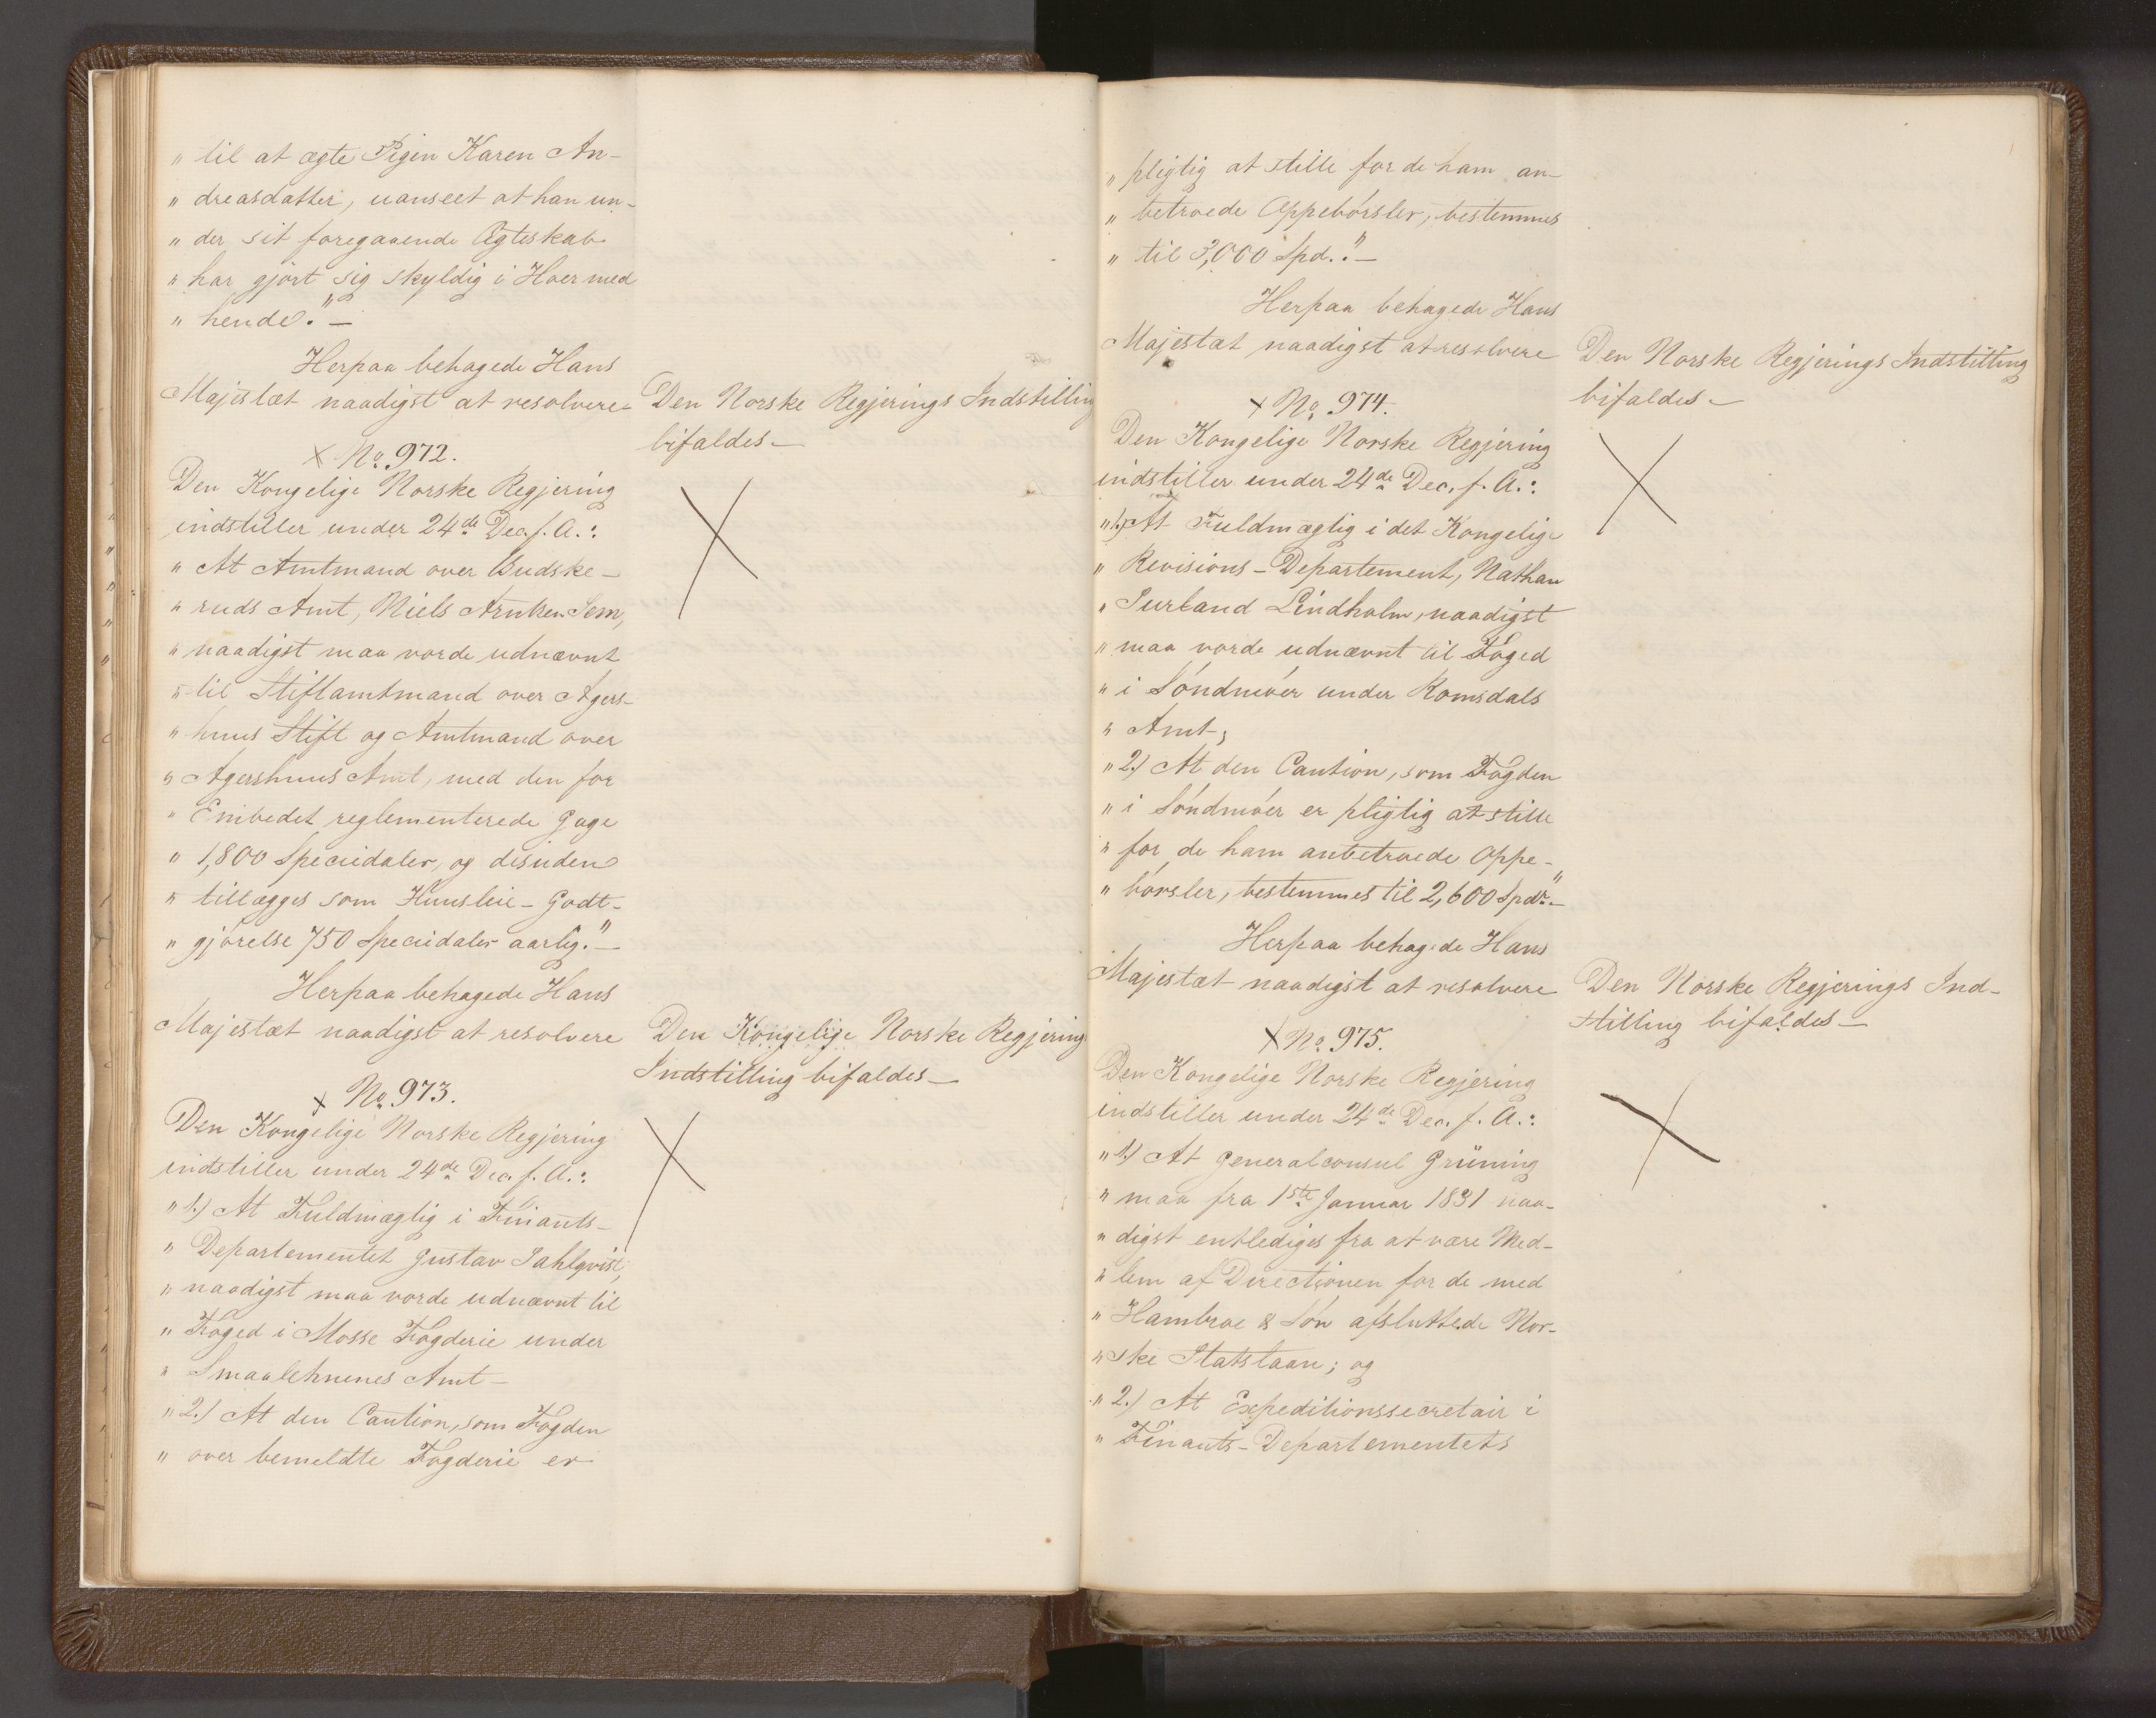 „ til at ægte Pigen Karen An-
„ dreasdatter, uanseet at han un-
„ der sit foregaaende Ægteskab
„ har gjört sig skyldig i Hoer med
„ hende.“ —
Herpaa behagede Hans
Majestæt naadigst at resolvere
Den Norske Regjerings Indstilling
bifaldes —
No. 972.
Den Kongelige Norske Regjering
indstiller under 24de Dec. f. A.:
„ At Amtmand over Budske-
„ ruds Amt, Niels Arntzen Sem,
„ naadigst maa vorde udnævnt
„ til Stiftamtmand over Agers-
„ huus Stift og Amtmand over
„ Agershuus Amt, med den for
„ Embedet reglementerede Gage
„ 1,800 Speciedaler, og desuden
„ tillægges som Huusleie-Godt-
„ gjörelse 750 Speciedaler aarlig.“ —
Herpaa behagede Hans
Majestæt naadigst at resolvere
Den Kongelige Norske Regjering
Indstilling bifaldes —
No. 973.
Den Kongelige Norske Regjering
indstiller under 24de Dec. f. A.:
„ 1.) At Fuldmægtig i Finants-
„ Departementet Gustav Sahlqvist,
„ naadigst maa vorde udnævnt til
„ Foged i Mosse Fogderie under
„ Smaalehnenes Amt —
„ 2.) At den Caution, som Fogden
„ over bemeldte Fogderie er
„ pligtig at stille for de ham an-
„ betroede Oppebörsler, bestemmes
„ til 3,000 Spd.“ —
Herpaa behagede Hans
Majestæt naadigst at resolvere
Den Norske Regjerings Indstilling
bifaldes —
No. 974.
Den Kongelige Norske Regjering
indstiller under 24de Dec. f. A.:
„ 1.) At Fuldmægtig i det Kongelige
„ Revisions-Departement, Nathan
„ Lindholm, naadigst
„ maa vorde udnævnt til Foged
„ i Söndmöer under Romsdals
„ Amt;
„ 2.) At den Caution, som Fogden
„ i Söndmöer er pligtig at stille
„ for de ham anbetroede Oppe-
„ börsler, bestemmes til 2,600 Spdr.“ —
Herpaa behagede Hans
Majestæt naadigst at resolvere
Den Norske Regjerings Ind-
stilling bifaldes —
No. 975.
Den Kongelige Norske Regjering
indstiller under 24de Dec. f. A.:
„ 1.) At Generalconsul Grüning
„ maa fra 1ste Januar 1831 naa-
„ digst entlediges fra at være Med-
„ lem af Directionen for de med
„ Hambroe & Sön afsluttede Nor-
„ ske Statslaan; og
„ 2.) At Expeditionssecretair i
„ Finants-Departementets